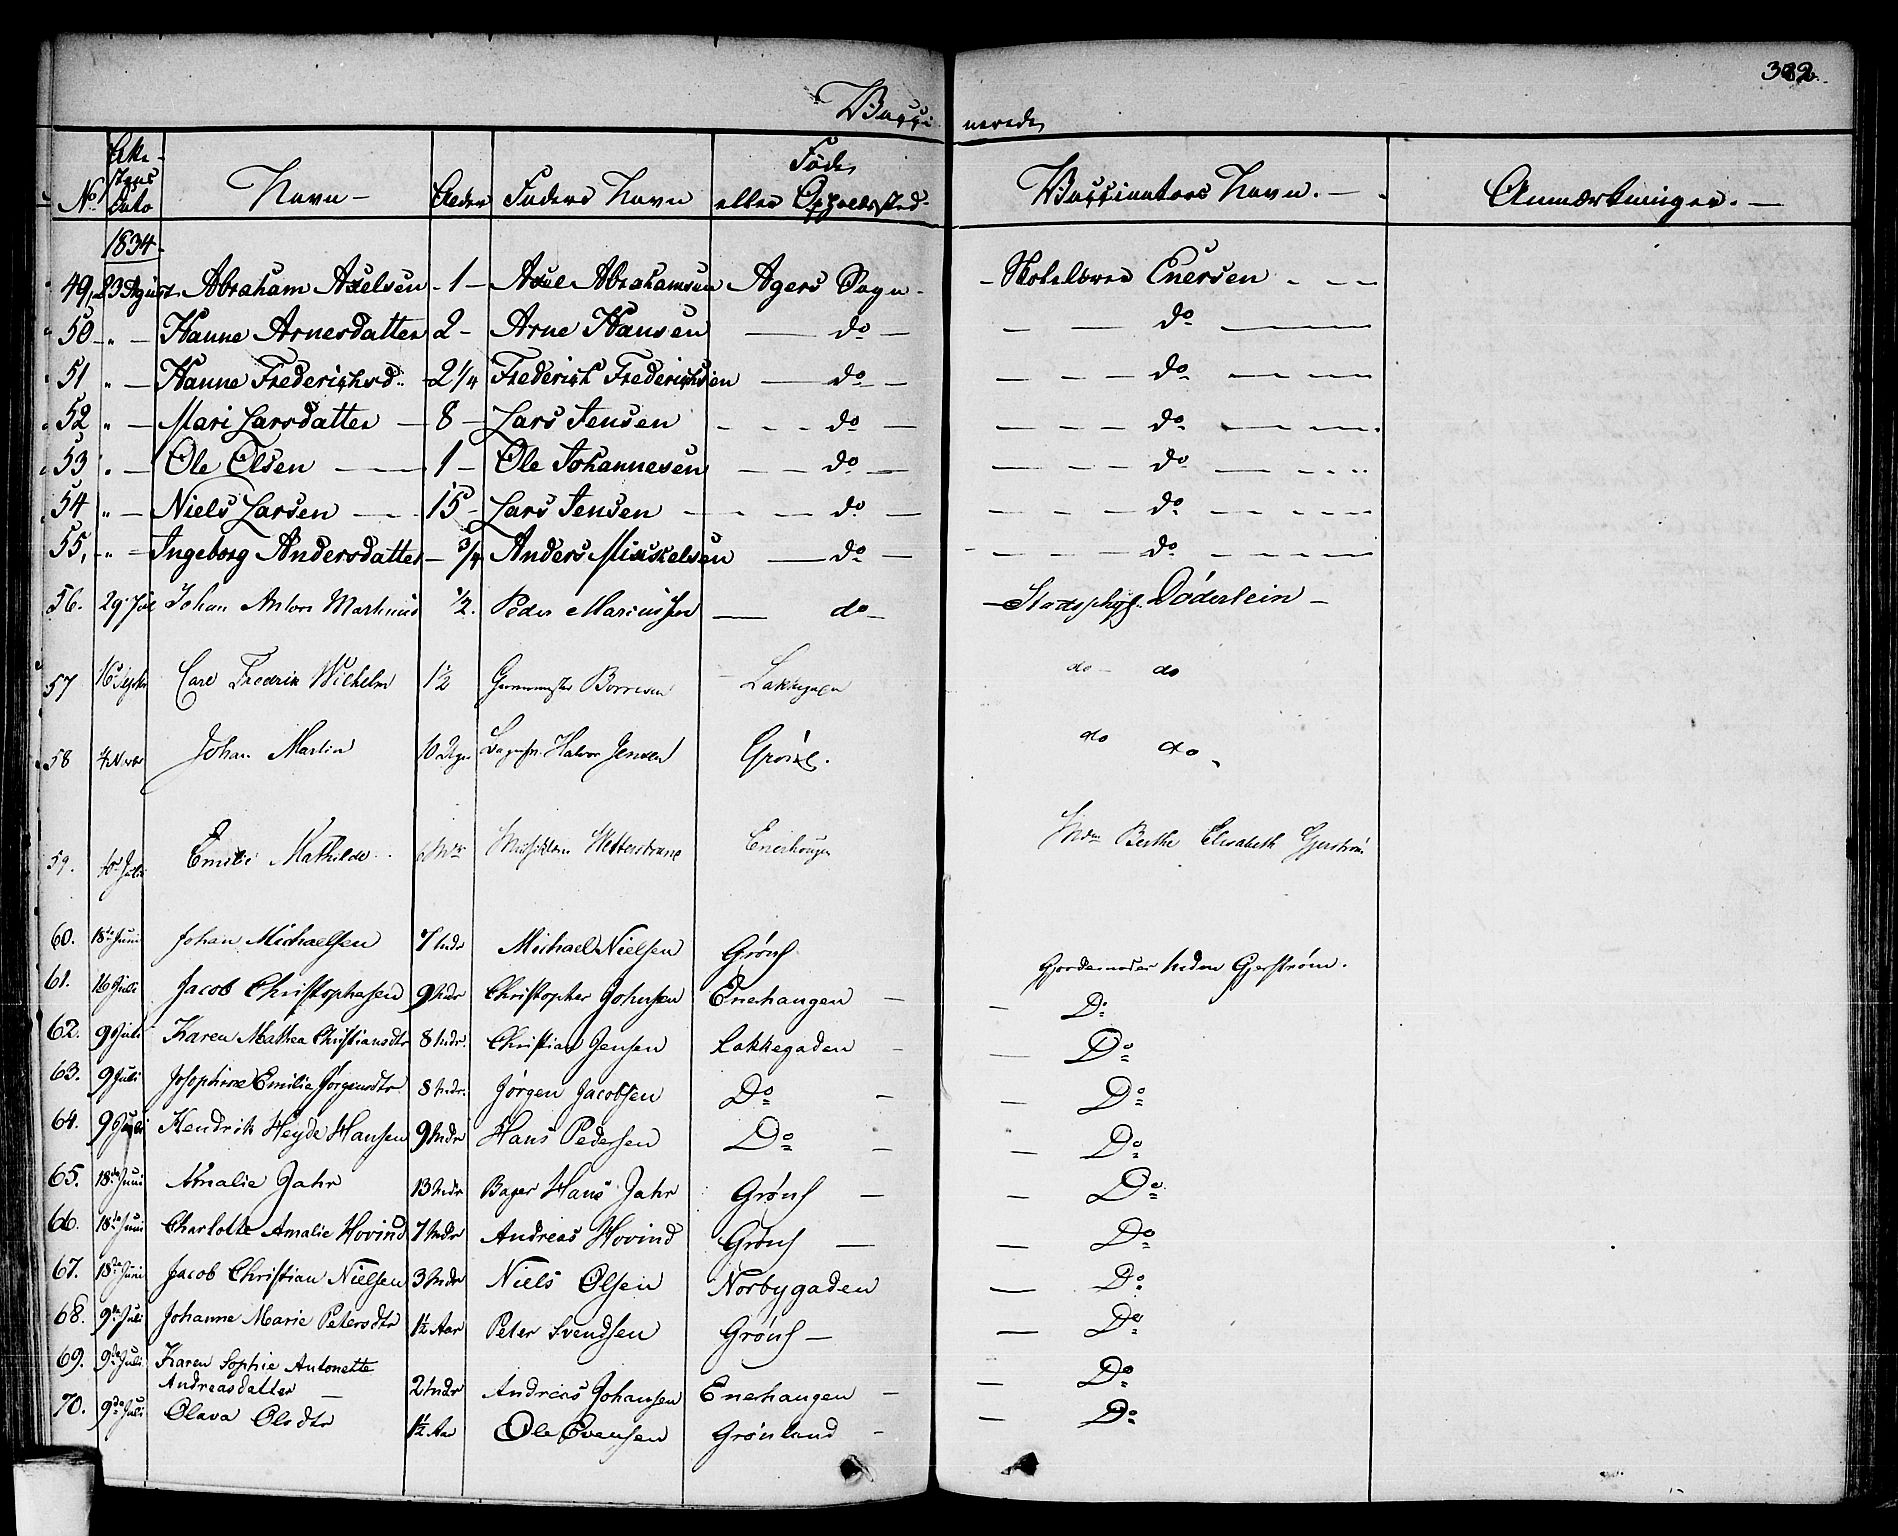 382.
Vacci nerede
No
Navn
Alder
Faders Navn
Føde eller Opholdssted
Vaccinators Navn.
Anmærkninger.
1834
49, 23 August Abraham Axelsen 1 Axel Abrahamsen Agers Sogn Skolelærer Enersen
50 " Hanne Arnesdatter 2 Arne Hansen do do
51 " Hanne Frederichsd. 2 1/4 Frederich Frederichsen do do
52 " Mari Larsdatter 8 Lars Jensen do do
53 " Ole Olsen 1 Ole Johannesen do do
54 " Niels Larsen 15 Lars Jensen do do
55, " Ingeborg Andersdatter 3/4 Anders Mikkelsen do do
56. 29 Johan Anton Martinus 1/2. Peder Mariussen do Stadsphys. Döderlein
57 16 Septbr Carl Fredrik Wilhelm 1 1/2 Borresen Lakkegaden do do
58 4 Novbr Johan Martin 10 Halvor Jensen Grönl. do do
59. Juli Emilie Mathilde Enerhougen Mdm Berthe Elisabeth Gjerström
60. 18de Juni Johan Michaelsen 7 Mdr Michael Nielsen Grönl Gjordemoder Mdm Gjerström.
61. 16 Juli Jacob Christophersen 9 Mdr Christopher Johnsen Enerhaugen Do
62. 9 Juli Karen Mathea Christiansdtr 8 Mdr. Christian Jensen Lakkegaden Do
63. 9 Juli Josephine Emilie Jörgensdtr 8 Mdr. Jörgen Jacobsen Do Do
64. 9 Juli Hendrik Heyde Hansen 9 Mdr Hans Pedersen Do Do
65. 18de Juni Amalie Jahr 13 Mdr Bager Hans Jahr Grönl Do
66. 18de Juni Charlotte Amalie Hovind 7 Mdr Andreas Hovind Grönl Do
67. 18de Juni Jacob Christian Nielsen 3 Mdr Niels Olsen Norbygaden Do
68. 9de Juli Johanne Marie Petersdtr 1 1/2 Aar Peter Svendsen Grönl Do
69. 9de Juli Karen Sophie Antonette
Andreasdatter 2 Mdr Andreas Johansen Enerhaugen Do
70. 9de Juli Olava Olsdtr 1 1/2 Aar Ole Evensen Grönland Do